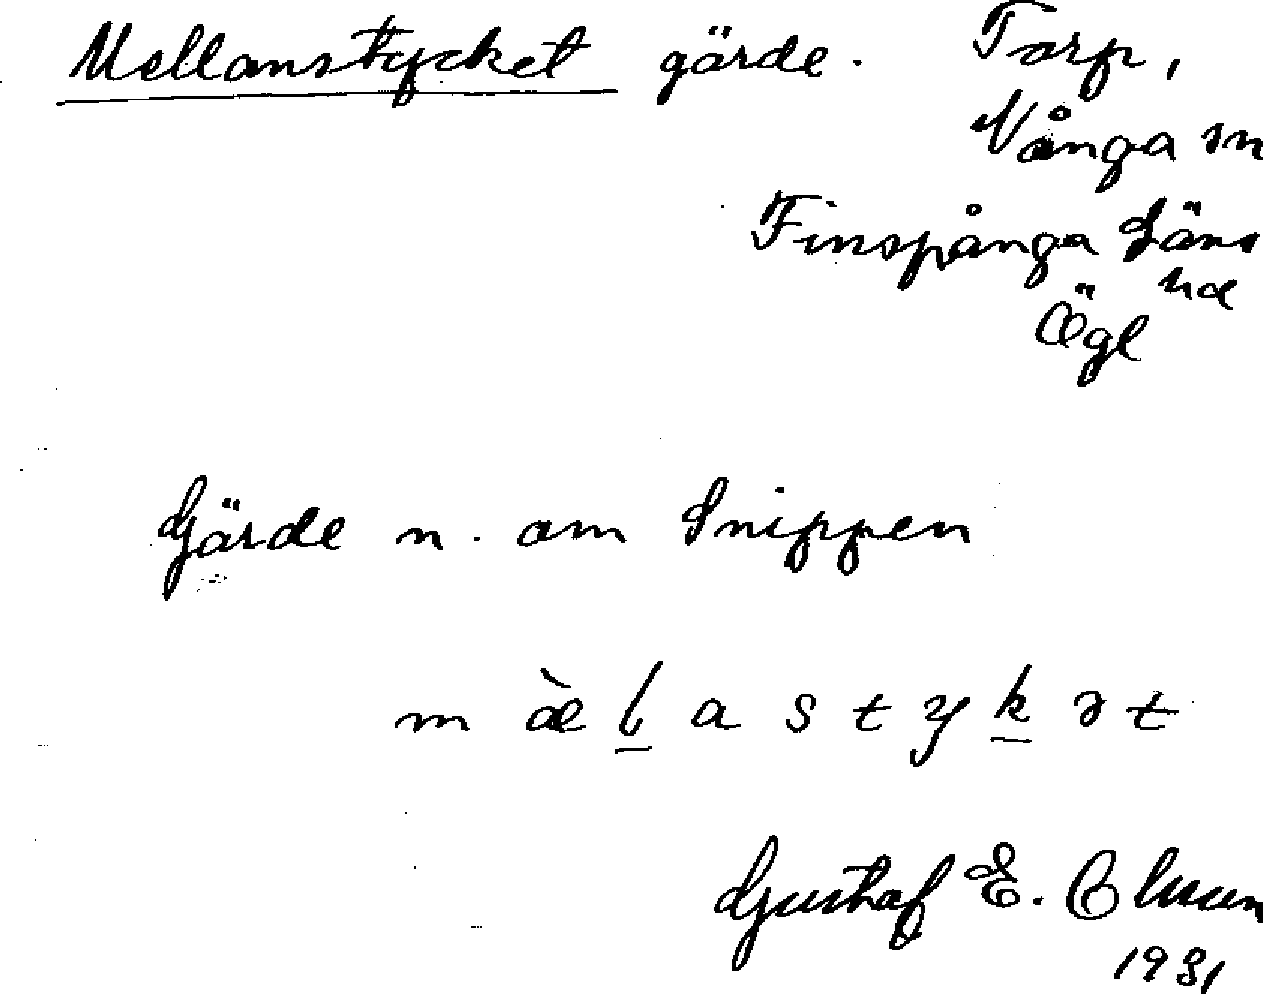 Mellanstycket gärde. Torp,
Vånga sn
Finspånga Läns
hd
Ögl
Gärde n. om Snippen
m æ̀ l̲ a s t y k̲ ə t
Gustaf E. Olsson
1931